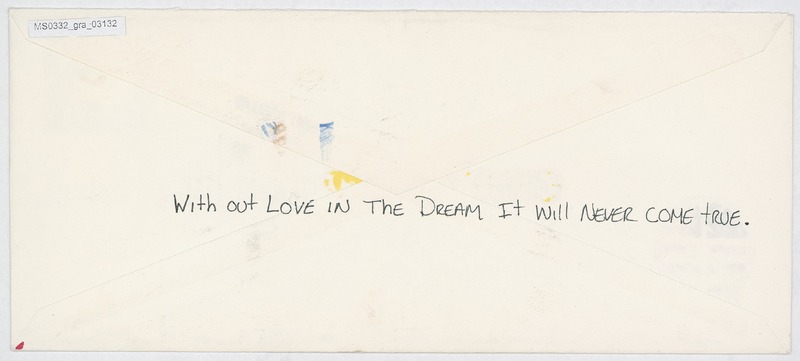 MS0332_gra_03132
With out LOVE IN THE DREAM It will NEVER COME tRUE.